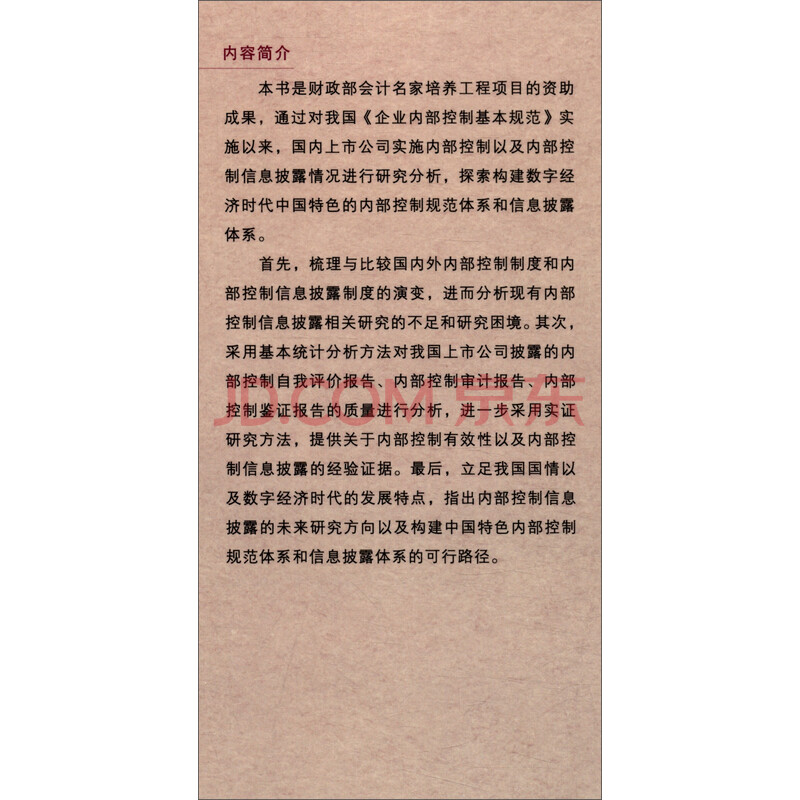 内容简介
本书是财政部会计名家培养工程项目的资助
成果，通过对我国《企业内部控制基本规范》实
施以来，国内上市公司实施内部控制以及内部控
制信息披露情况进行研究分析，探索构建数字经
济时代中国特色的内部控制规范体系和信息披露
体系。
首先，梳理与比较国内外内部控制制度和内
部控制信息披露制度的演变，进而分析现有内部
控制信息披露相关研究的不足和研究困境。其次，
采用基本统计分析方法对我国上市公司披露的内
部控制自我评价报告、内部控制审计报告、内部
JD.COM 京东
控制鉴证报告的质量进行分析，进一步采用实证
研究方法，提供关于内部控制有效性以及内部控
制信息披露的经验证据。最后，立足我国国情以
及数字经济时代的发展特点，指出内部控制信息
披露的未来研究方向以及构建中国特色内部控制
规范体系和信息披露体系的可行路径。